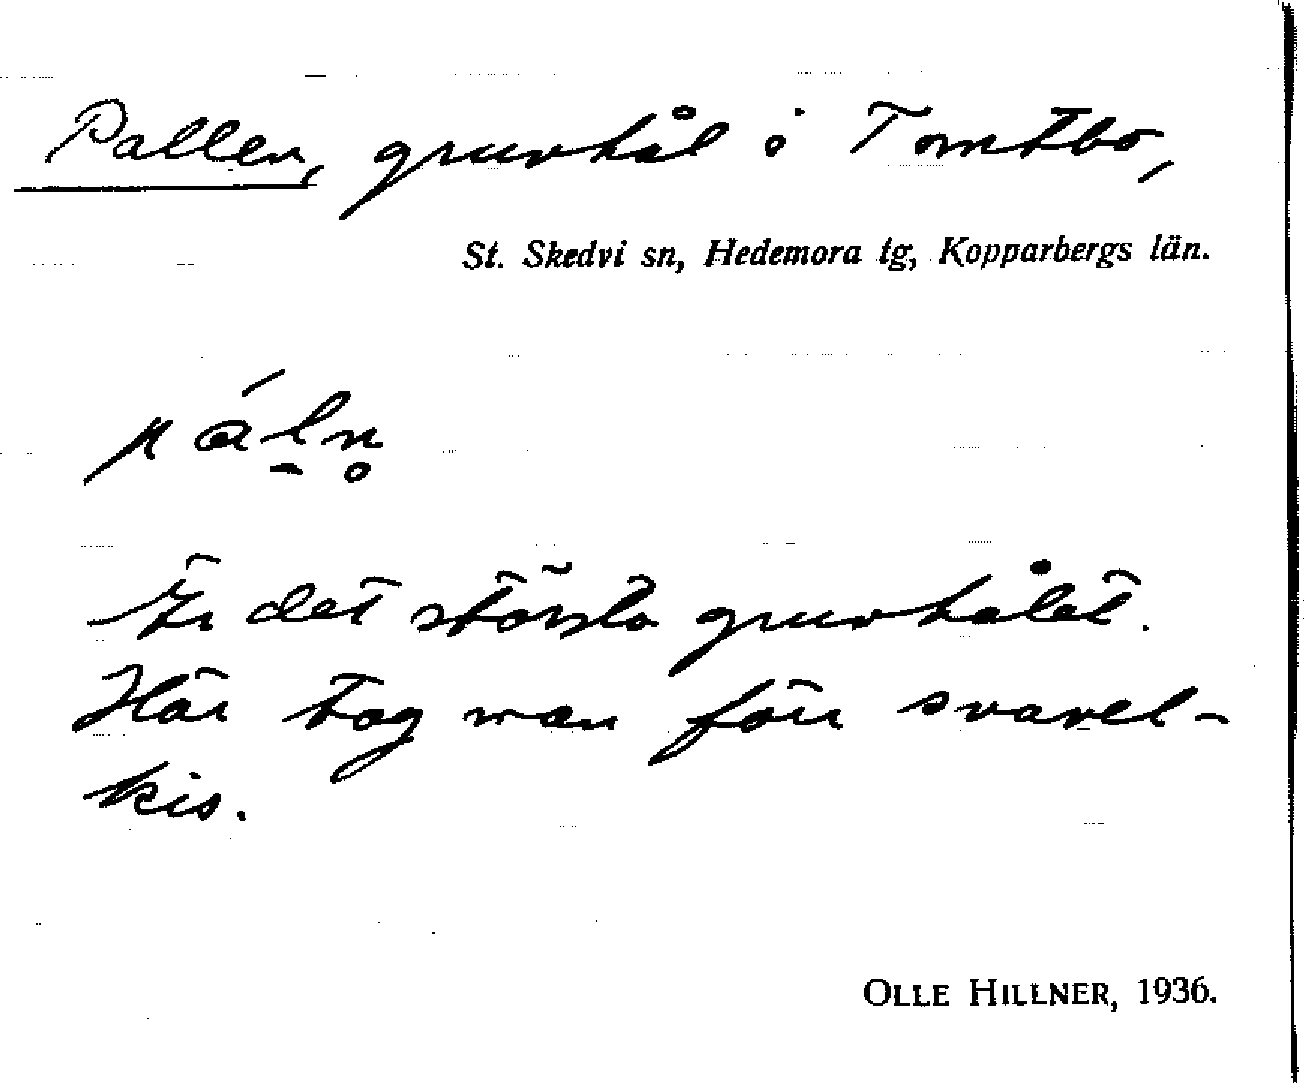 Pallen, gruvhål i Tomtbo,
St. Skedvi sn, Hedemora tg, Kopparbergs län.
pál̠n̥
Är det största gruvhålet.
Här tog man förr svavel-
kis.
OLLE HILLNER, 1936.